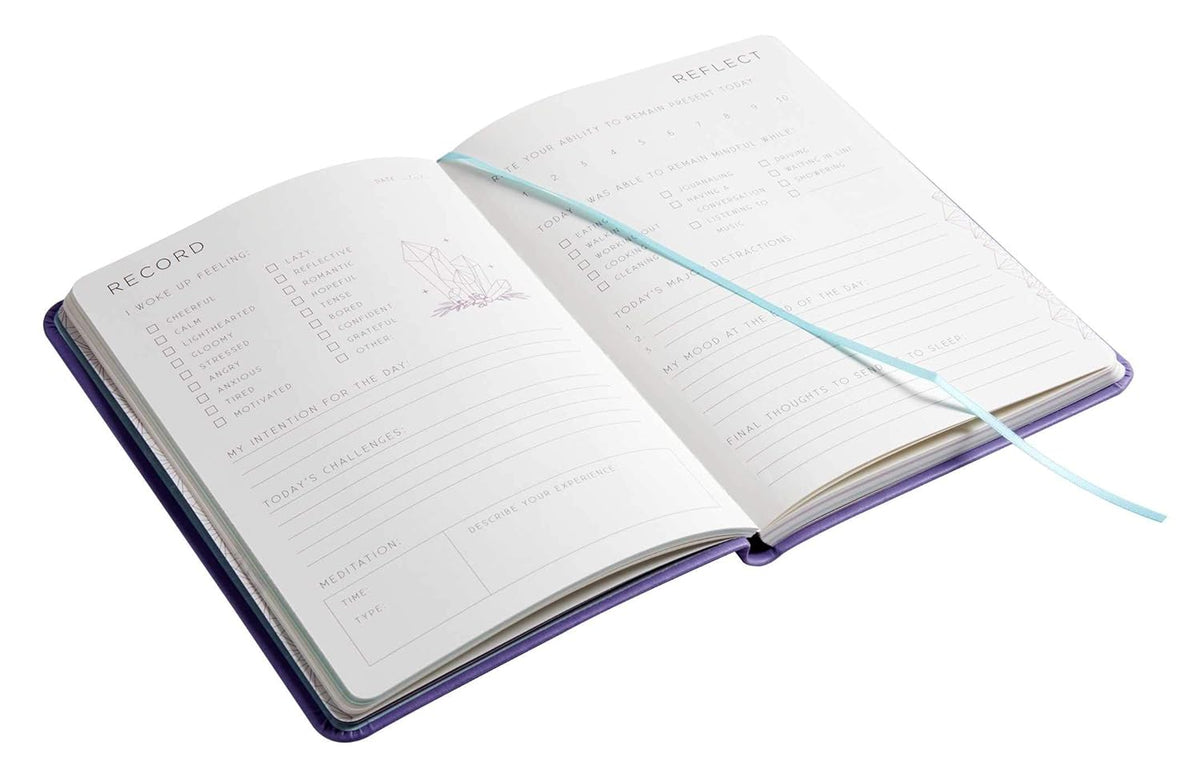 RECORD
DATE
I WOKE UP FEELING:
CHEERFUL
CALM
LIGHTHEARTED
GLOOMY
STRESSED
ANGRY
ANXIOUS
TIRED
MOTIVATED
LAZY
REFLECTIVE
ROMANTIC
HOPEFUL
TENSE
BORED
CONFIDENT
GRATEFUL
OTHER:
MY INTENTION FOR THE DAY:
TODAY'S CHALLENGES:
MEDITATION:
TIME:
TYPE:
DESCRIBE YOUR EXPERIENCE:
REFLECT
YOUR ABILITY TO REMAIN PRESENT TODAY
1 2 3 4 5 6 7 8 9 10
TODAY WAS ABLE TO REMAIN MINDFUL WHILE:
EATING
WALKIN
WORKING OUT
COOKING
CLEANING
JOURNALING
HAVING A
CONVERSATION
LISTENING TO
MUSIC
DRIVING
WAITING IN LINE
SHOWERING
TODAY'S MAJOR DISTRACTIONS:
1.
2.
3.
MY MOOD AT THE END OF THE DAY:
FINAL THOUGHTS TO SEND TO SLEEP: